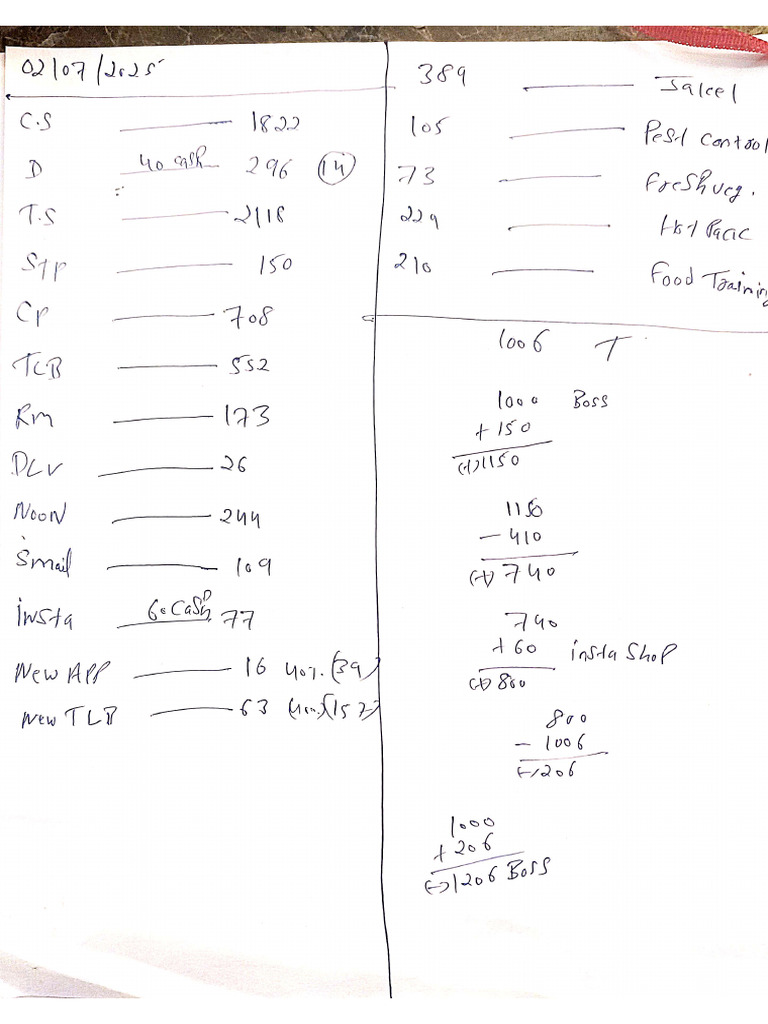 02/07/2025
C.S 1822
D 40 cash 296 (14)
T.S 2118
STP 150
CP 708
TLB 552
Rm 173
DLV 26
NOON 244
Smail 109
insta 60 Cash 77
New APP 16 40%. (39)
New TLB 63 (157)
389 Jaleel
105 Pest Control
73 Freshveg.
229 Hot Pack
210 Food Training
1006 T
1000 Boss
+ 150
(+) 1150
1150
- 410
(+) 740
740
+ 60 insta Shop
(+) 800
800
- 1006
(-) 206
1000
+ 206
(-) 1206 Boss